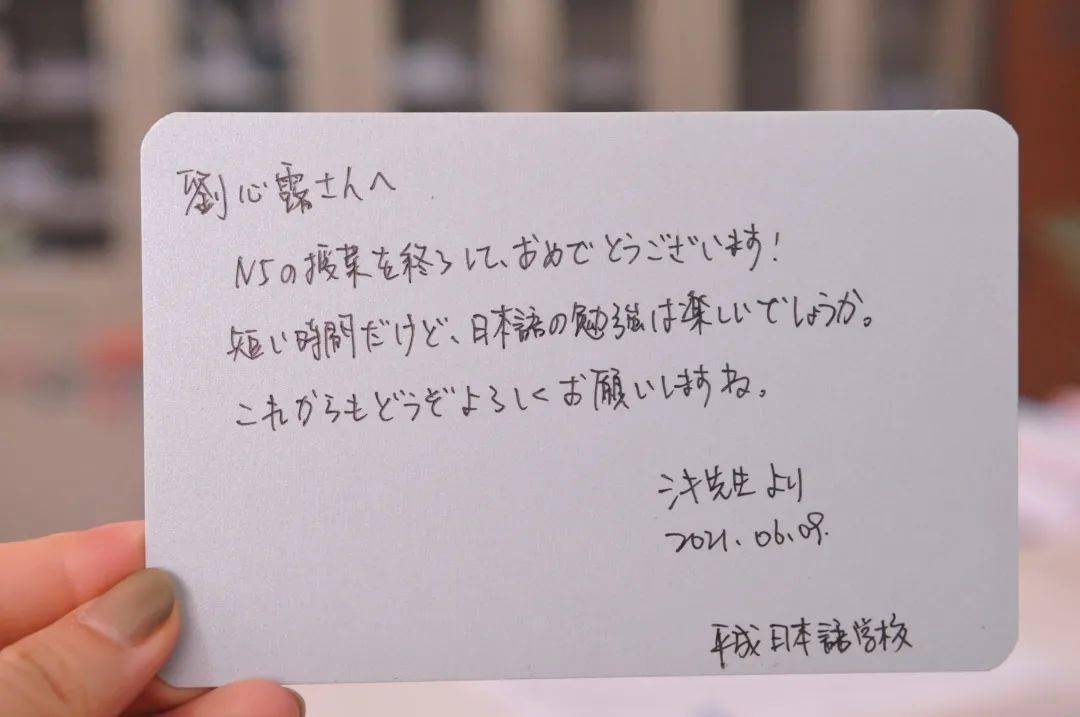 劉心露さんへ
N5の授業を終了して、おめでとうございます!
短い時間だけど、日本語の勉強は楽しいでしょうか。
これからもどうぞよろしくお願いしますね。
先生より
2021.06.09.
平成日本語学校